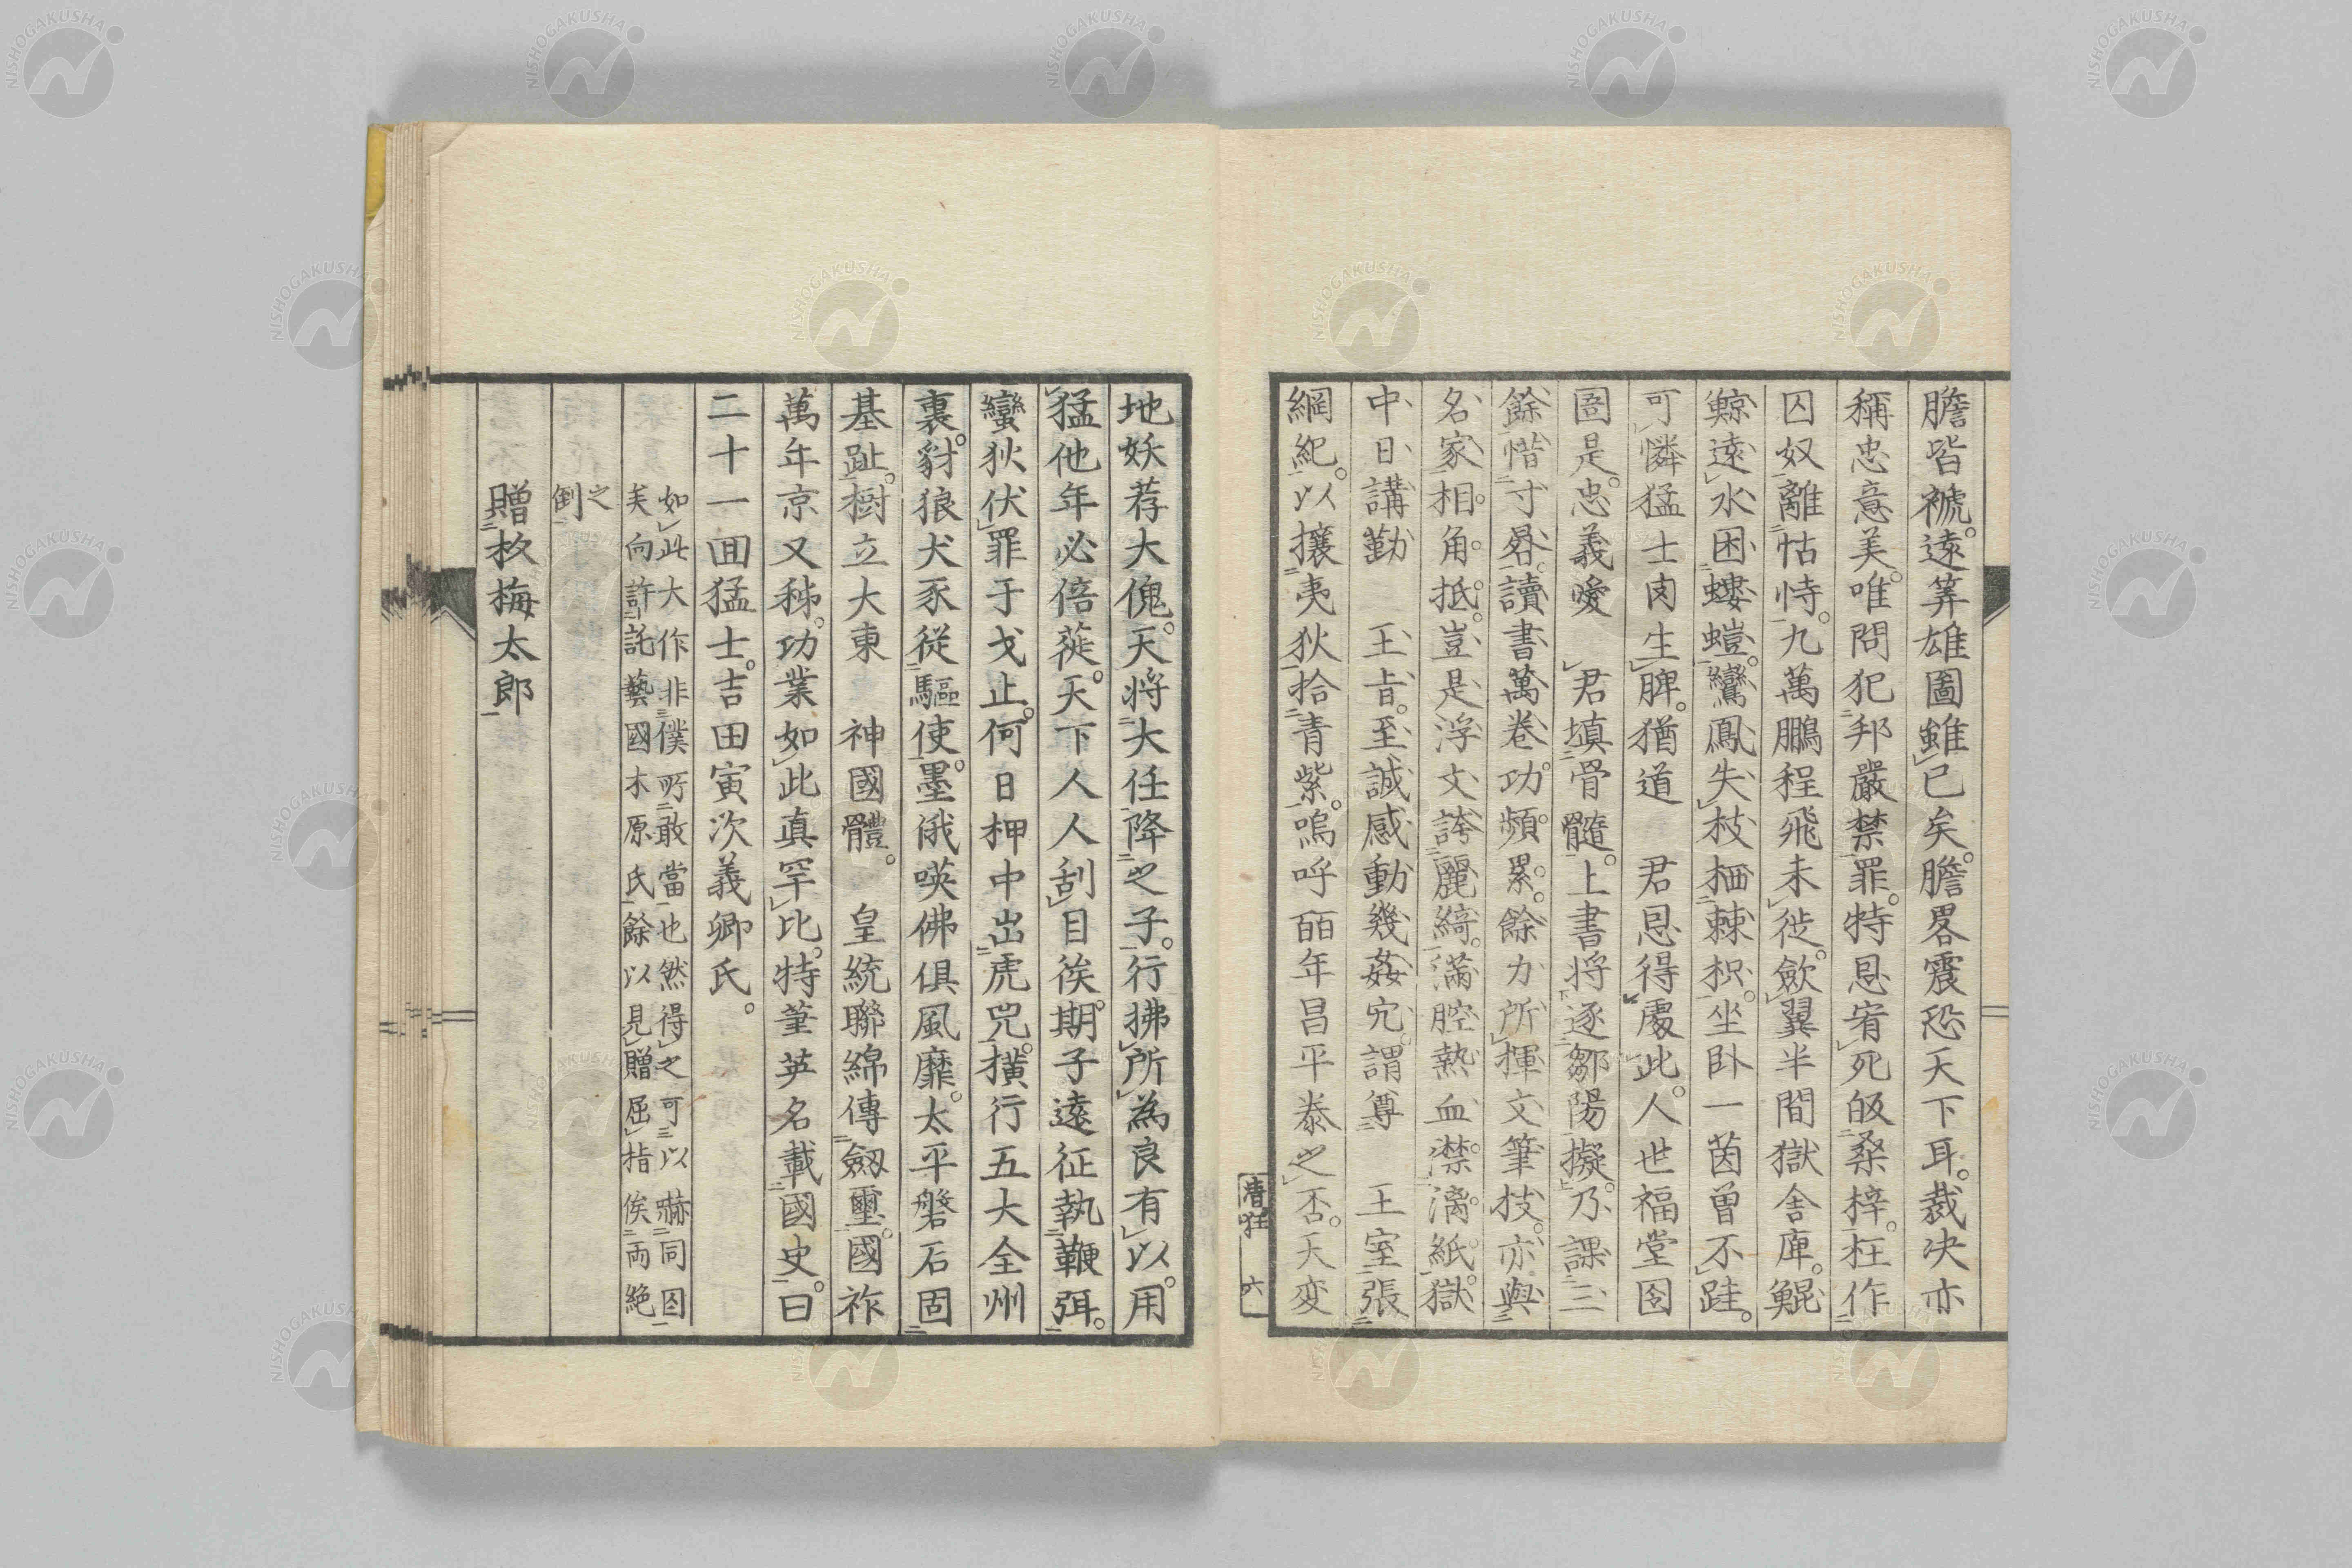 膽皆褫。遠筭雄圖雖已矣。膽畧震恐天下耳。裁决亦
稱忠意美。唯問犯邦嚴禁罪。特恩宥死皈桑梓。枉作
囚奴離怙恃。九萬鵬程飛未徙。斂翼半間獄舍庳。鯤
鯨遠水困螻螘。鸞鳳失枝栖棘枳。坐卧一茵曽不跬。
可憐猛士肉生脾。猶道 君恩得處此。人世福堂囹
圄是。忠義愛 君填骨髓。上書将逐鄒陽擬。乃課三
餘惜寸晷。讀書萬卷功頻累。餘力所揮文筆技。亦與
名家相角抵。豈是浮文誇麗綺。滿腔熱血漆漓紙。獄
中日講勤 王旨。至誠感動幾姦宄。謂尊 王室張
綱紀。以攘夷狄拾青紫。嗚呼百年昌平泰之否。天変
清狂 六
地妖荐大傀。天将大任降之子。行拂所為良有以。用
猛他年必倍蓰。天下人人刮目俟。期子遠征執鞭弭。
蠻狄伏罪于戈止。何日柙中出虎兕。橫行五大全州
裏。豺狼犬豕從驅使。墨俄暎佛俱風靡。太平磐石固
基趾。樹立大東 神國體。 皇統聯綿傳劔璽。國祚
萬年京又秭。功業如此真罕比。特筆英名載國史。曰
二十一回猛士。吉田寅次義卿氏。
如此大作非僕所敢當也然得之可以嚇同囚
矣向許託藝國木原氏餘以見贈屈指俟両絶
之
倒
贈杉梅太郎
NISHOGAKUSHA